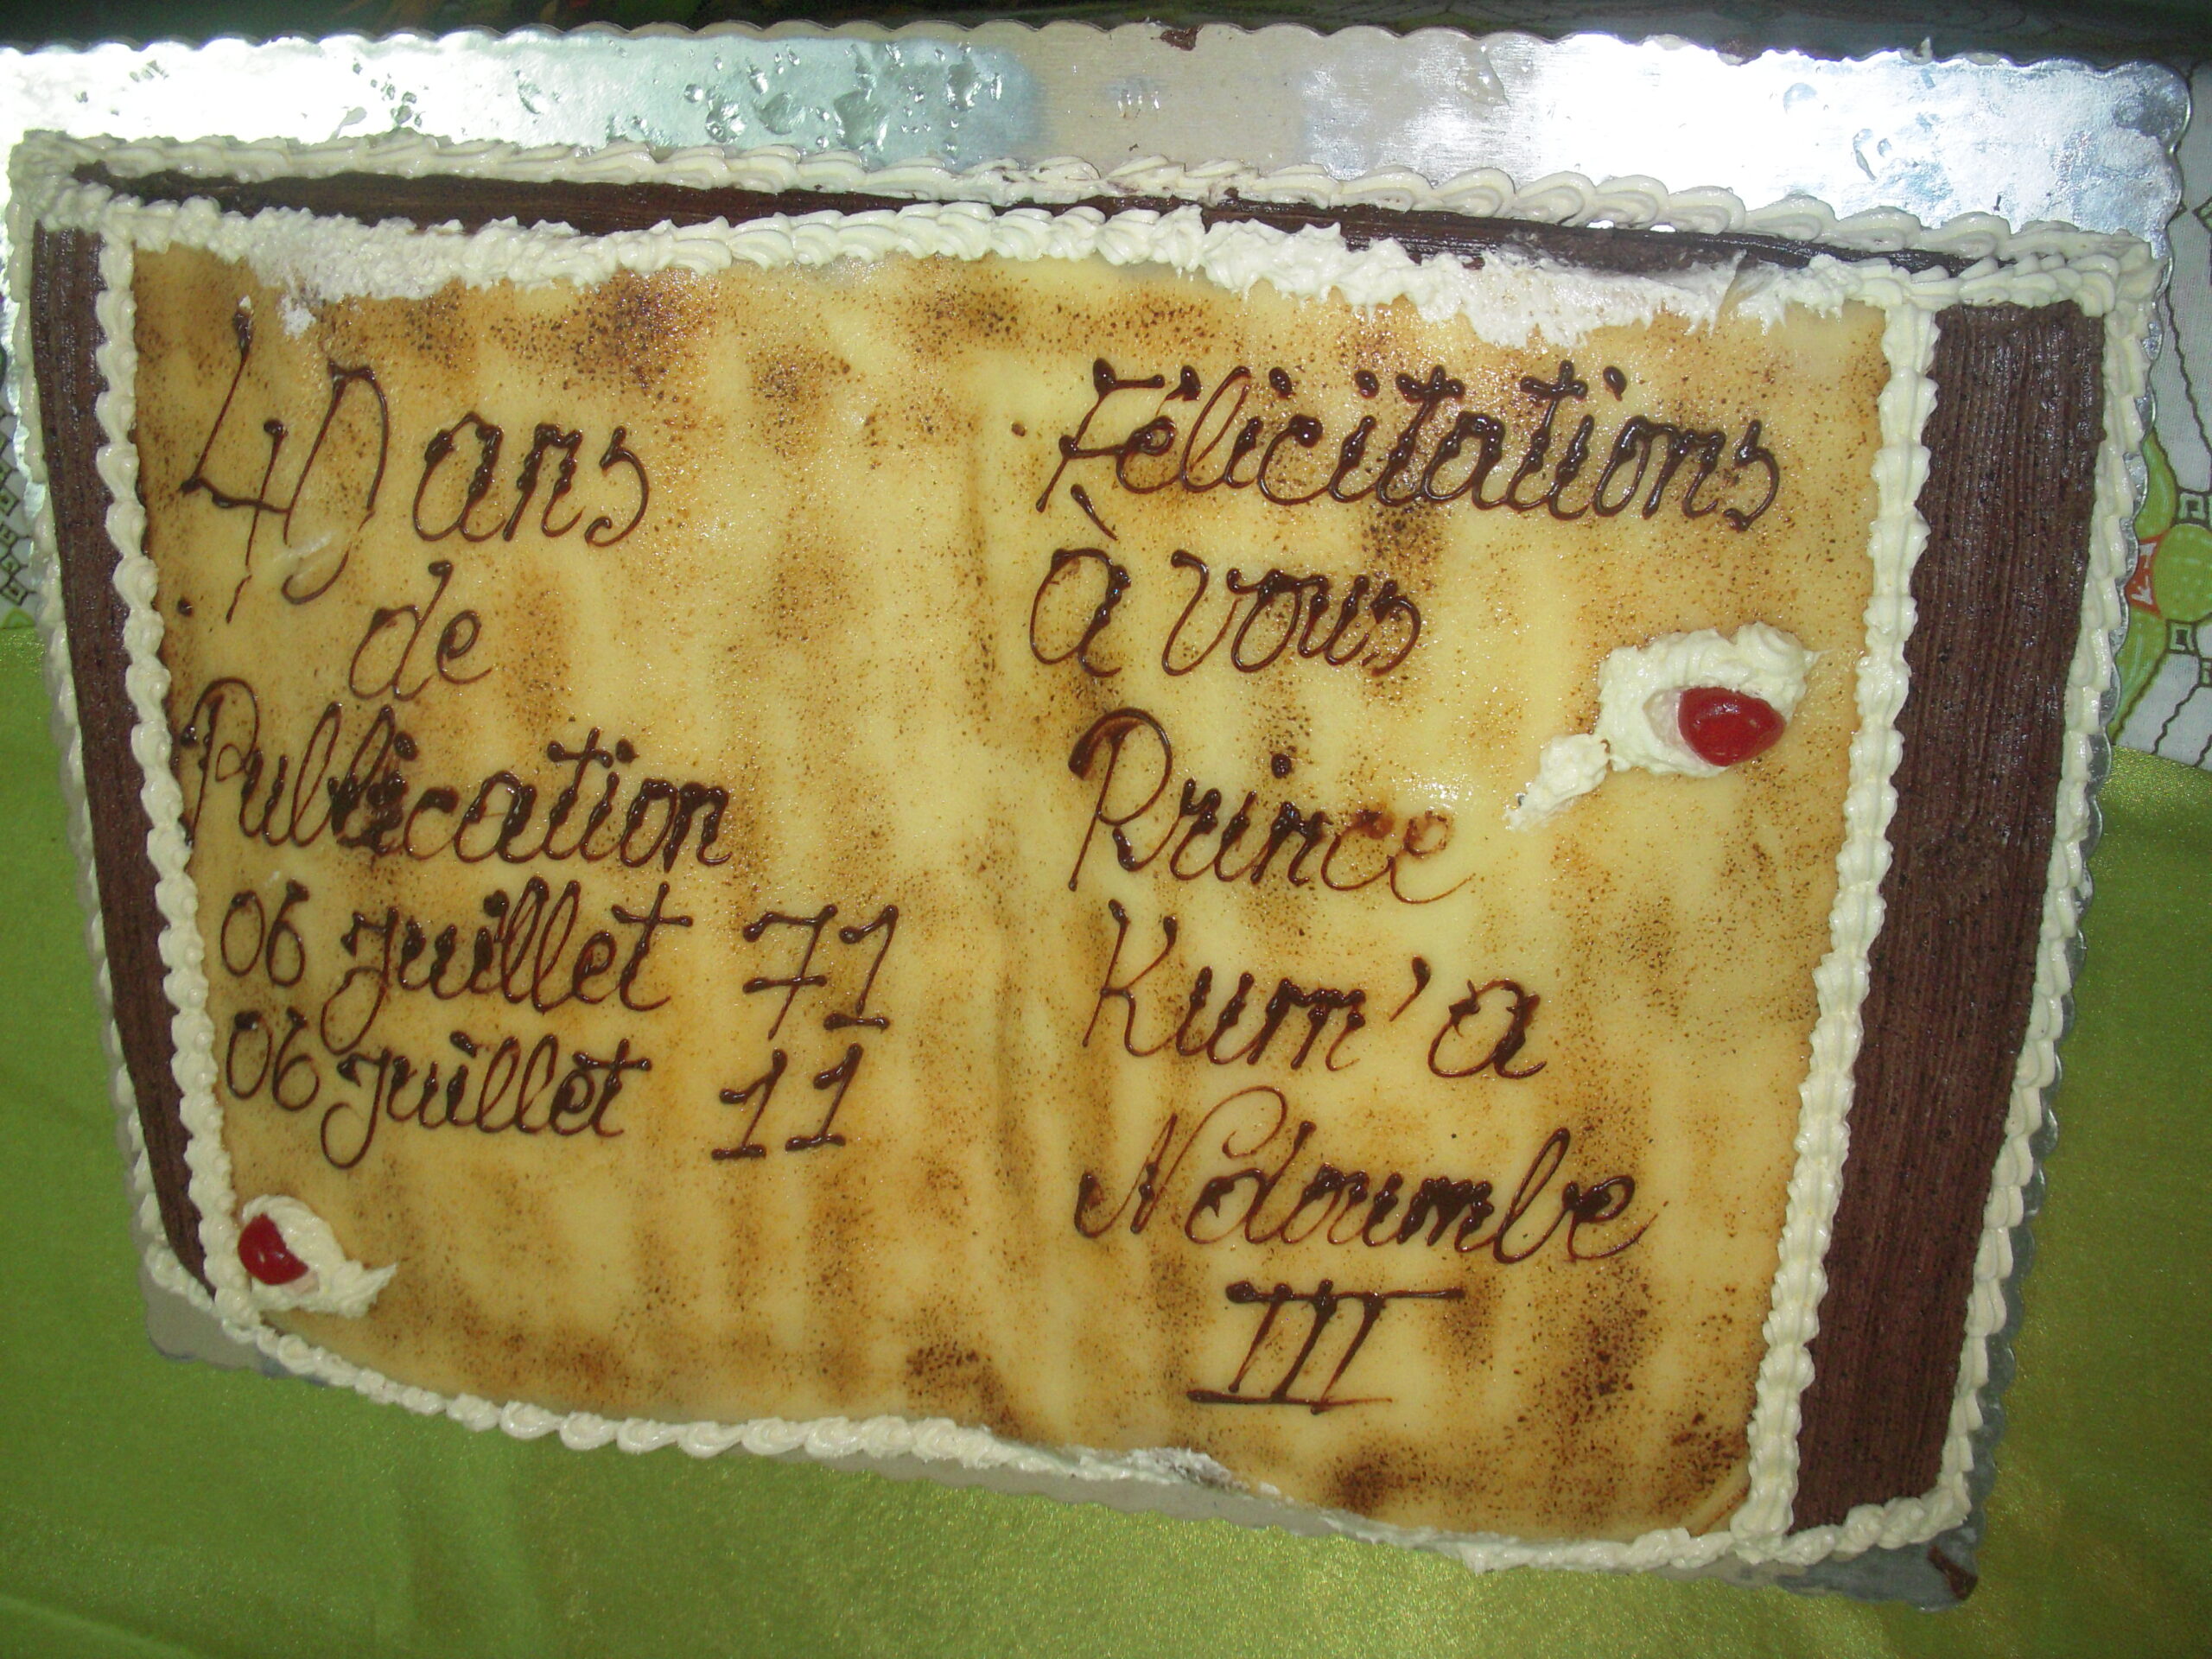 40 ans
de
Publication
06 juillet 71
06 juillet 11
Félicitations
à vous
Prince
Kum'a
Ndoumbe
III